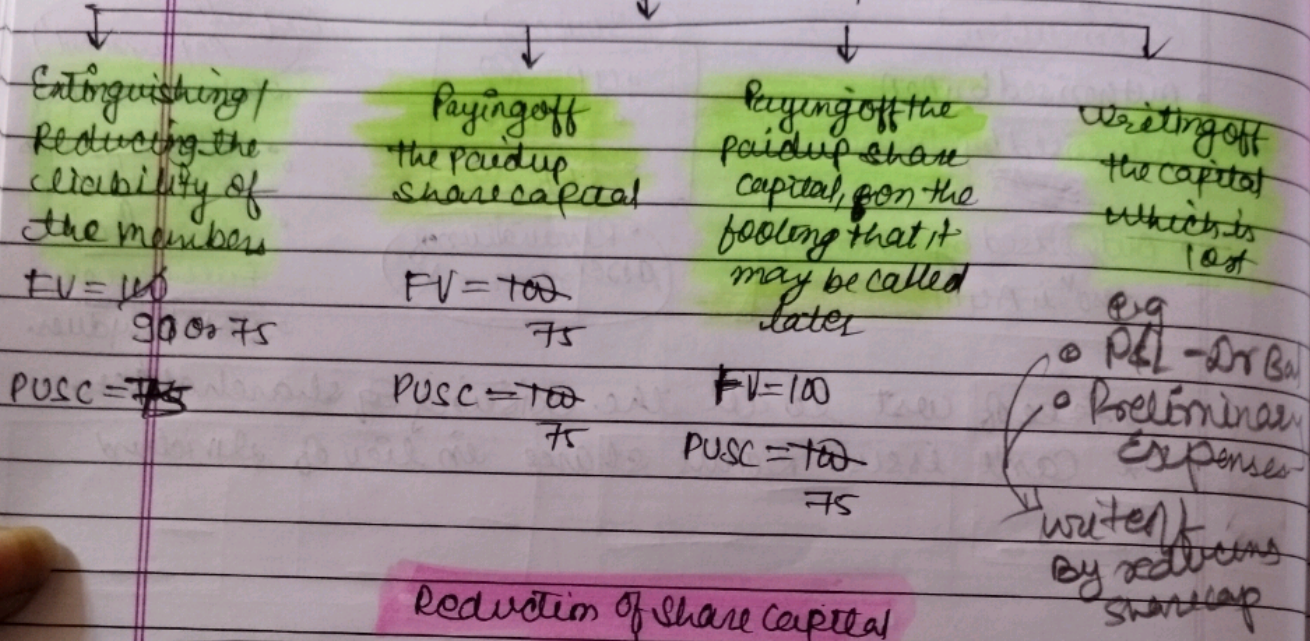 Extinguishing/
Reducing the
liability of
the members
FV = 100
90 or 75
PUSC = 75
Paying off
the paidup
share capital
FV = 100
75
PUSC = 100
75
Paying off the
paidup share
capital, on the
fooling that it
may be called
later
FV = 100
PUSC = 100
75
Writing off
the capital
which is
lost
e.g
P&L - Dr Bal
Preliminary
Expenses
write off
By reducing
sharecap
Reduction of share capital